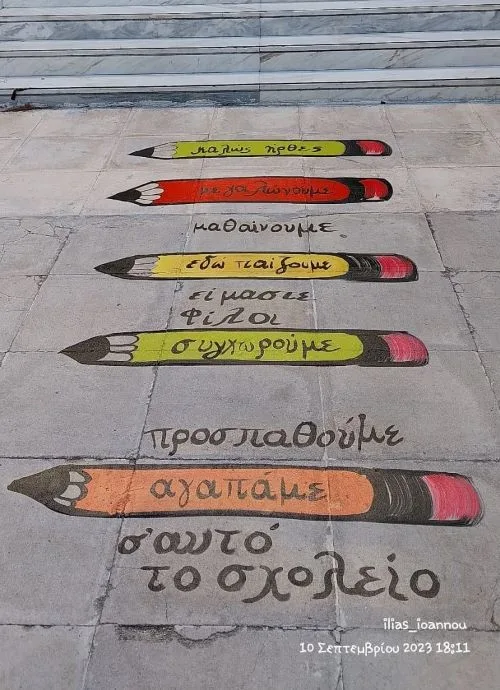 καλως ήρθες
μεγαλώνουμε
μαθαίνουμε
εδώ παίζουμε
είμαστε
φίλοι
συγχωρούμε
προσπαθούμε
αγαπάμε
σ'αυτό
το σχολείο
ilias_ioannou
10 Σεπτεμβρίου 2023 18:11